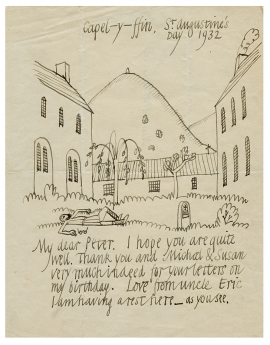 Capel-y-ffin. St Augustine's
Day 1932
My dear Peter. I hope you are quite
well. Thank you and Michael & Susan
very much indeed for your letters on
my birthday. Love from uncle Eric
I am having a rest here — as you see.